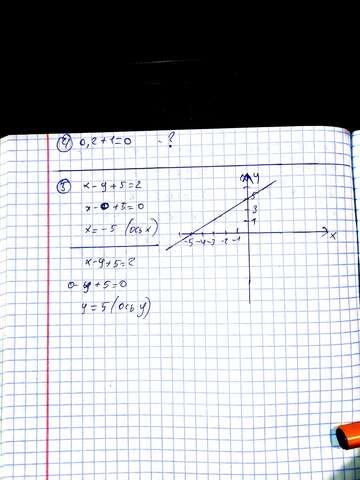 4) 0,2+1=0 - ?
5) x-y+5=2
x-0+5=0
x=-5 (ось x)
x-y+5=2
0-y+5=0
y=5 (ось y)
y
5
3
1
-5 -4 -3 -2 -1
x